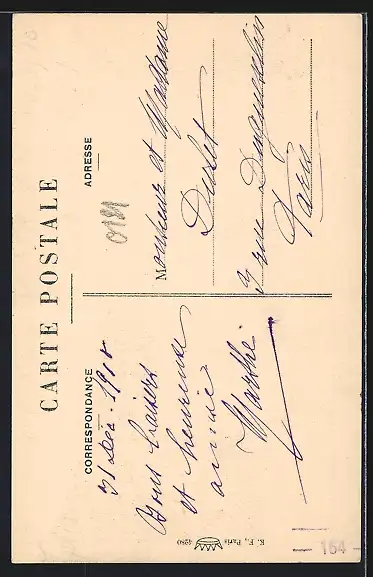 CARTE POSTALE
CORRESPONDANCE
31 Dec. 1918
Bons baisers
et heureuse
année
Marthe
ADRESSE
Monsieur et Madame
3 rue Duguesclin
Paris
K. F., Paris
4280
164